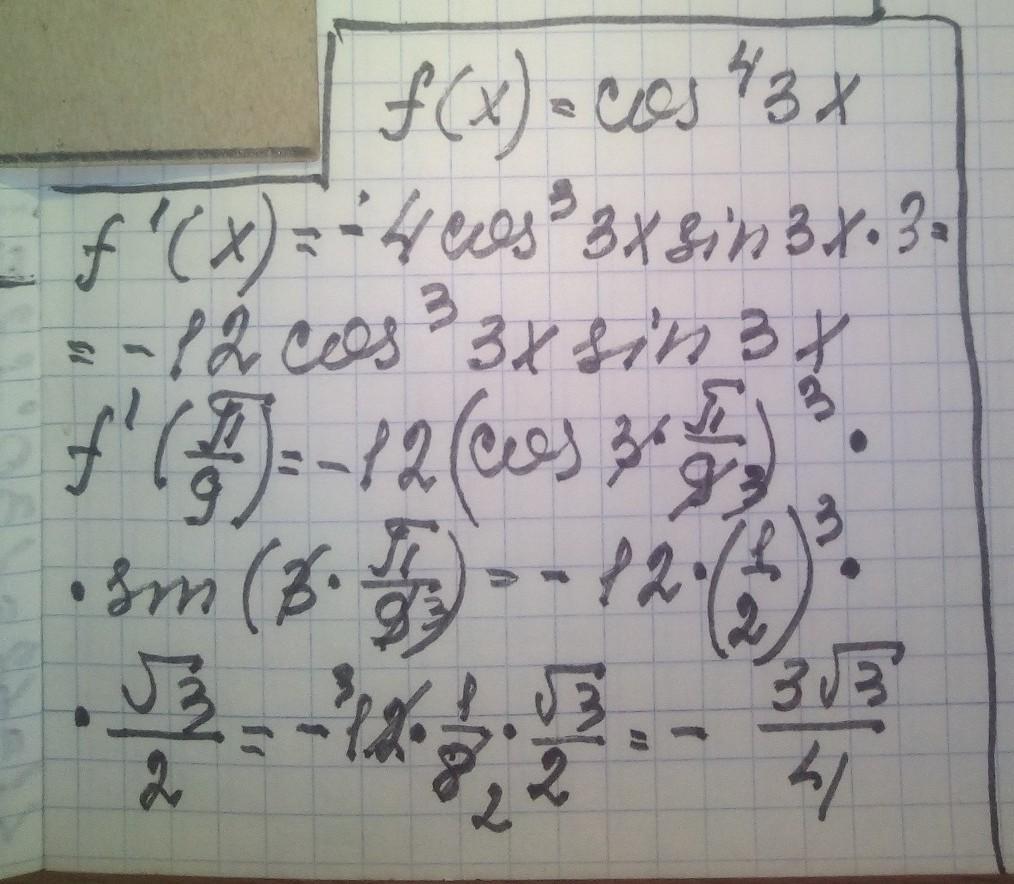 f(x) = cos⁴3x
f'(x) = -4cos³3x sin3x·3=
= -12 cos³ 3x sin 3x
f'(π/9) = -12(cos 3·π/9 3)³·
·sin(3·π/9 3) = -12·(1/2)³·
·√3/2 = -³12·1/8 2·√3/2 = - 3√3/4